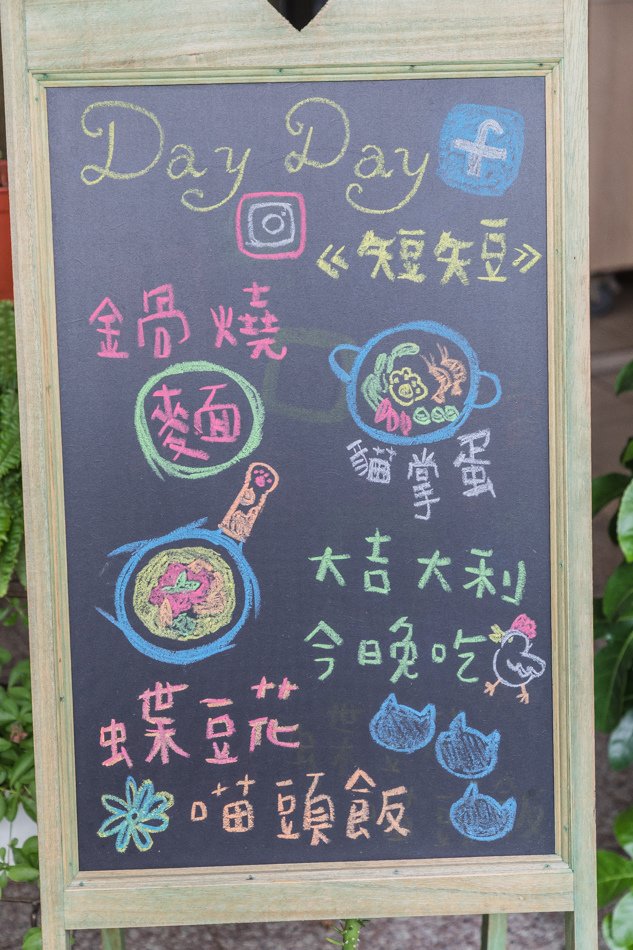 Day Day
《短短》
鍋燒
麵
貓掌蛋
大吉大利
今晚吃
蝶豆花
喵頭飯